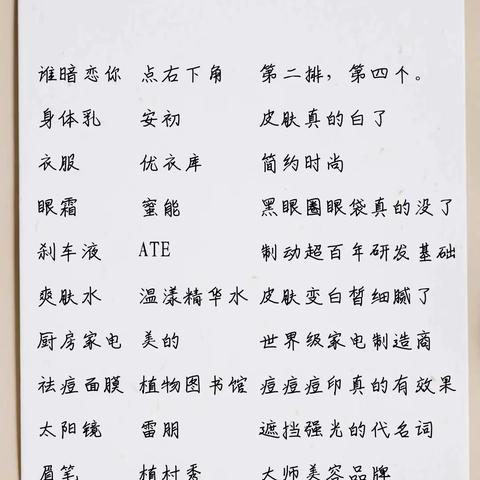 谁暗恋你 点右下角 第二排，第四个。
身体乳 安初 皮肤真的白了
衣服 优衣库 简约时尚
眼霜 蜜能 黑眼圈眼袋真的没了
刹车液 ATE 制动超百年研发基础
爽肤水 温漾精华水 皮肤变白皙细腻了
厨房家电 美的 世界级家电制造商
祛痘面膜 植物图书馆 痘痘痘印真的有效果
太阳镜 雷朋 遮挡强光的代名词
眉笔 植村秀 大师美容品牌